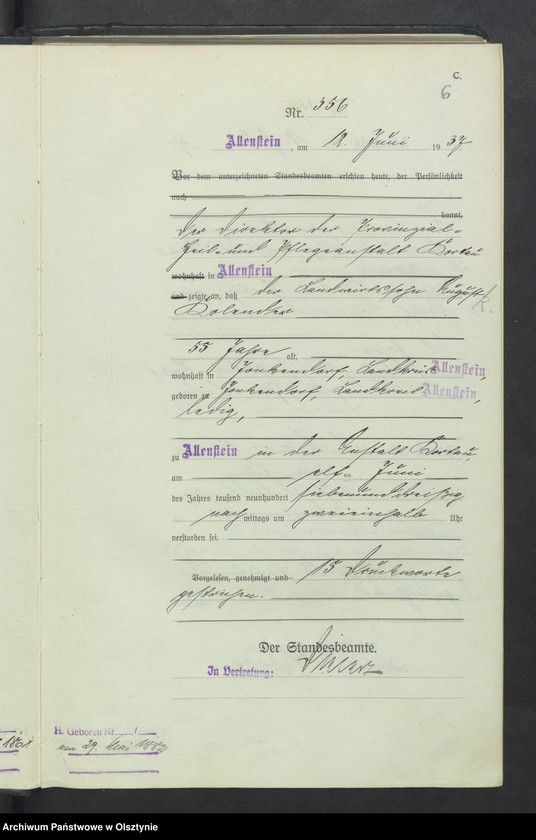 C.
6
Nr. 356
Allenstein, am 12. Juni 1937
Vor dem unterzeichneten Standesbeamten erschien heute, der Persönlichkeit
nach
kannt,
Der Direktor der Provinzial-
Heil- und Pflegeanstalt Kortau
wohnhaft in Allenstein
und zeigte an, daß der Landwirtssohn August
Kolender
55 Jahre alt,
wohnhaft in Jonkendorf, Landkreis Allenstein,
geboren zu Jonkendorf, Landkreis Allenstein,
ledig,
zu Allenstein in der Anstalt Kortau,
am elften Juni
des Jahres tausend neunhundert siebenunddreißig
nach mittags um zweieinhalb Uhr
verstorben sei.
Vorgelesen, genehmigt und 15 Druckworte
gestrichen.
Der Standesbeamte.
In Vertretung:
H. Geboren Nr.
am 29. Mai 1882
1861
Archiwum Państwowe w Olsztynie